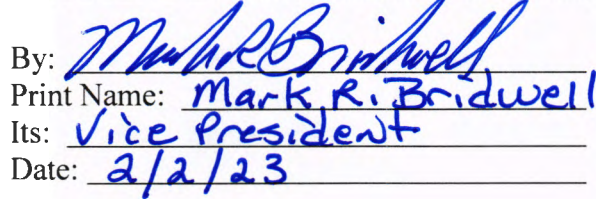 By: Mark R Bridwell
Print Name: Mark R. Bridwell
Its: Vice President
Date: 2/2/23